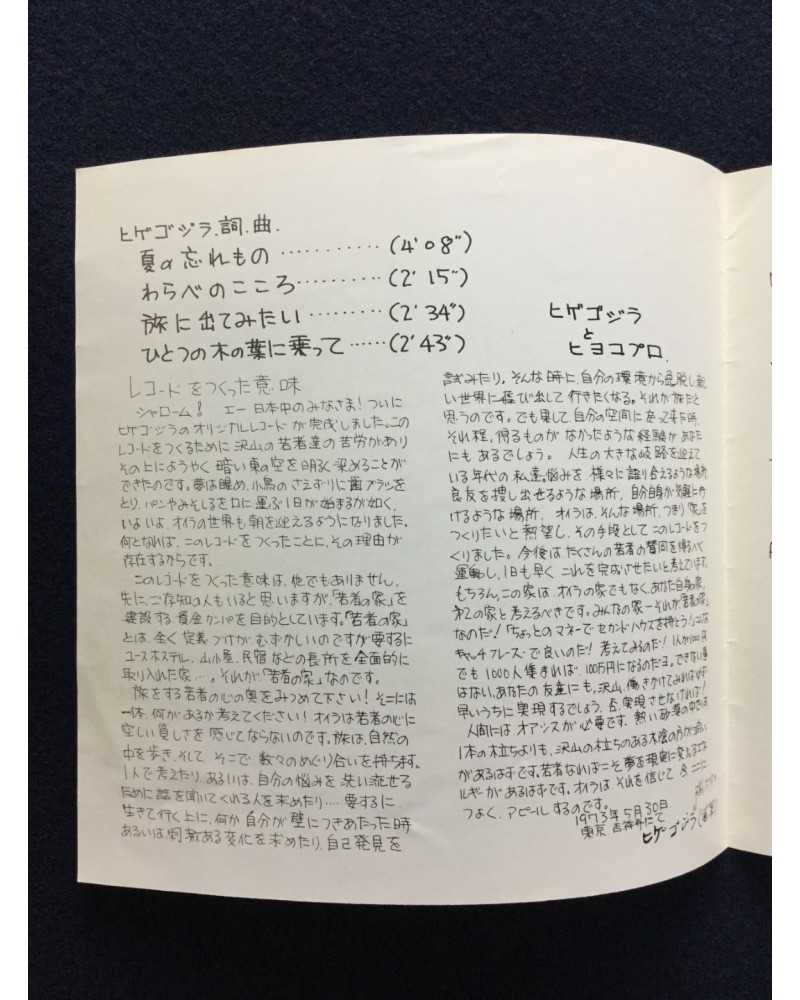 ヒゲゴジラ.詞.曲.
夏の忘れもの ………… (4'08")
わらべのこころ……… (2'15")
旅に出てみたい ……… (2'34")
ひとつの木の葉に乗って …… (2'43")
レコードをつくった意味
シャローム! エー 日本中のみなさま! ついに
ヒゲゴジラのオリジナルレコードが完成しました。この
レコードをつくるために沢山の若者達の苦労があり
その上にようやく 暗い東の空を明るく染めることが
できたのです。夢は醒め、小鳥のさえずりに歯ブラシを
とり、パンやみそしるを口に運ぶ1日が始まるが如く、
いよいよ、オイラの世界も朝を迎えるようになりました。
何となれば、このレコードをつくったことに、その理由が
存在するからです。
このレコードをつくった意味は、他でもありません。
先に、ご存知の人もいると思いますが、「若者の家」を
建設する資金カンパを目的としています。「若者の家」
とは、全く定義づけがむずかしいのですが要するに
ユースホステル、山小屋、民宿などの長所を全面的に
取り入れた家…。それが「若者の家」なのです。
旅をする若者の心の奥をみつめて下さい! そこには
一体、何があるか考えてください! オイラは若者の心に
空しい貧しさを感じてならないのです。旅は、自然の
中を歩き、そして そこで 数々のめぐり合いを持ちます。
1人で考えたり、あるいは、自分の悩みを洗い流せる
ために話を聞いてくれる人を求めたり…‥要するに
生きて行く上に、何か自分が壁につきあたった時
あるいは刺激ある変化を求めたり、自己発見を
ヒゲゴジラ
と
ヒヨコプロ.
試みたり。そんな時に、自分の環境から脱し新し
い世界に飛び出して行きたくなる。それが旅だと
思うのです。でも果して、自分の空間に
それ程、得るものがなかったような経験があなた
にもあるでしょう。人生の大きな岐路を迎えて
いる年代の私達。悩みを、様々に語り合えるような場所
良友を捜し出せるような場所、自分自身が
けるような場所、オイラは、そんな場所、つまり家を
つくりたいと熱望し、その手段としてこのレコードをつ
くりました。今後はたくさんの若者の賛同を得るべく
運動し、1日も早く これを完成させたいと考えています。
もちろん、この家は、オイラの家でもなく、あなた自身の家、
第2の家と考えるべきです。みんなの家ーそれが「若者の家」
なのだ!「ちょっとのマネーでセカンドハウスを持とう!」こんな
キャッチフレーズで良いのだ! 考えてみるのだ! 1人が1000円
でも1000人集まれば、100万円になるのだヨ。できない事
はない。あなたの友達にも、沢山、働きかけてみれば
早いうちに実現するでしょう。否、実現させなければ!
人間には オアシスが必要です。熱い砂漠の中では
1本の木立ちよりも、沢山の木立ちのある木陰の方が
があるはずです。若者なればこそ夢を現実に変えるエネ
ルギーがあるはずです。オイラは、それを信じて 今 ここに
つよく、アピールするのです。
1973年5月30日.
東京 吉祥寺にて
ヒゲゴジラ